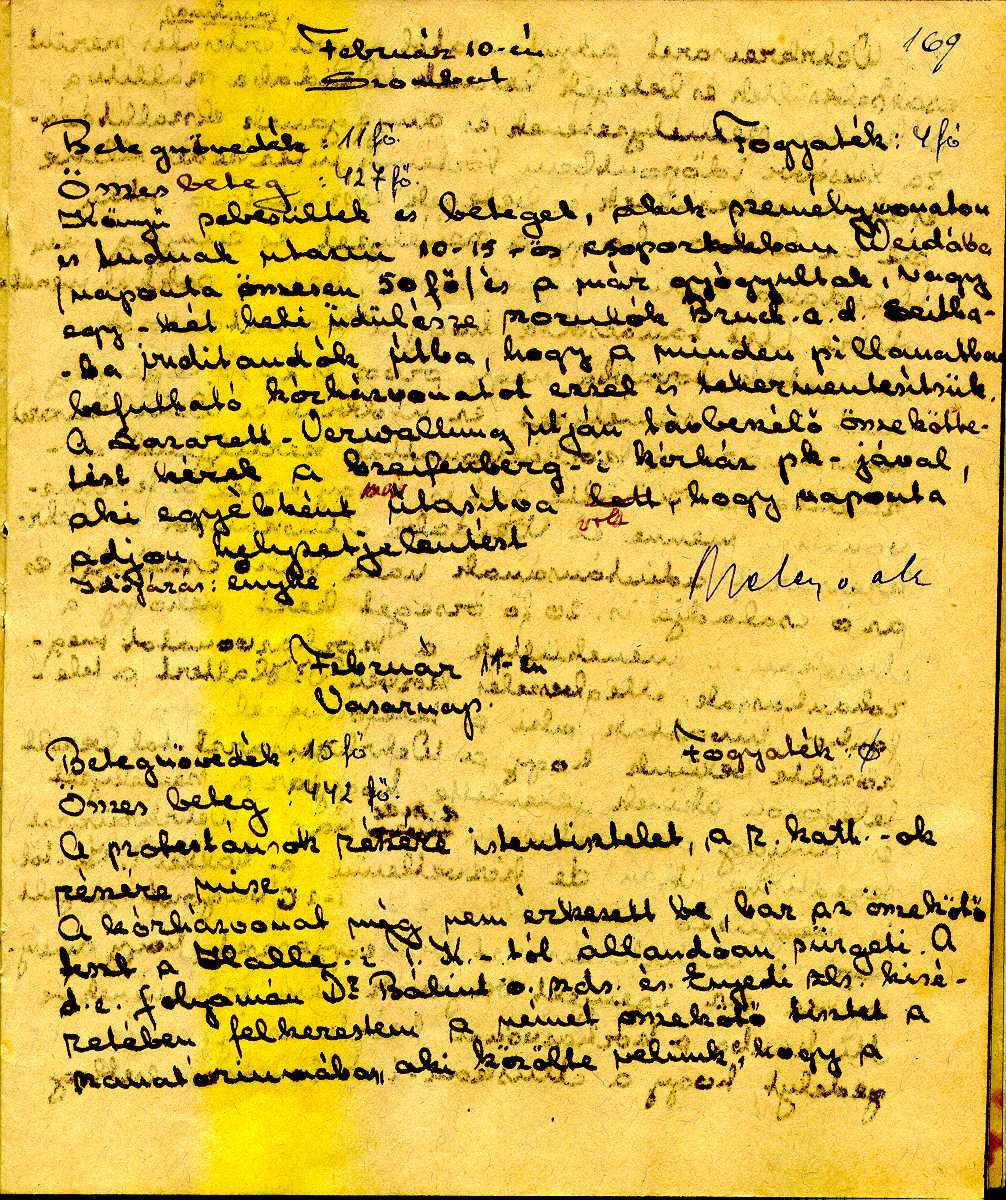 169
Február 10-én
Szombat
Betegnövedék : 11 fő. Fogyaték : 4 fő
Összes beteg : 427 fő.
Könnyű sebesültek és beteget, akik személyvonaton
is tudnak utazni 10-15-ös csoportokban Weidába
/naponta összesen 50 fő/ és a már gyógyultak, vagy
egy-két heti üdülésre szorulók Bruck a. d. Leitha-
-ba indítandók útba, hogy a minden pillanatban
befutható kórházvonatot ezzel is tehermentesítsük.
A Lazarett-Verwaltung útján távbeszélő összekötte-
tést kérek a Greifenberg-i kórház pk-jával,
aki egyébként utasítva lett, hogy naponta
volt
adjon helyzetjelentést
Időjárás: enyhe.
o. ale
Február 11-én
Vasárnap.
Betegnövedék : 15 fő Fogyaték : ø
Összes beteg : 442 fő.
A protestánsok részére istentisztelet, a r. kath.-ok
részére mise.
A kórházvonat még nem érkezett be, bár az összekötő
tiszt a Halle-i T. K.-tól állandóan sürgeti. A
d.e. folyamán Dr Bálint o. szds. és Enyedi szls. kísé-
retében felkerestem a német összekötő tisztet a
szanatóriumában, aki közölte velünk, hogy a